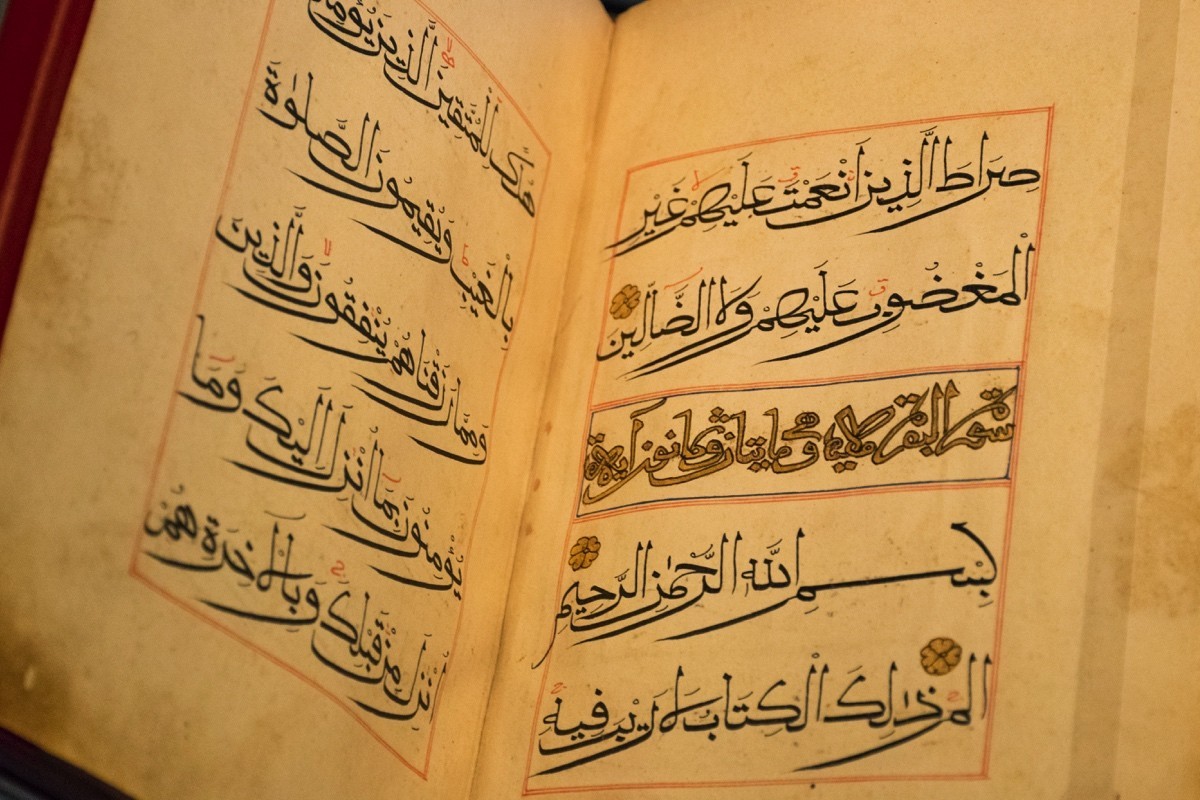 صِرَاطَ الَّذِينَ اَنْعَمْتَ عَلَيْهِمْ غَيْرِ
الْمَغْضُوبِ عَلَيْهِمْ وَلَا الضَّالِّينَ
سورة البقرة مكيه وهي مايتان وثمانون اية
بِسْمِ اللّٰهِ الرَّحْمٰنِ الرَّحِيمِ
الم ذٰلِكَ الْكِتَابُ لَا رَيْبَ فِيهِ
هُدًى لِلْمُتَّقِينَ الَّذِينَ يُؤْمِنُونَ
بِالْغَيْبِ وَيُقِيمُونَ الصَّلٰوةَ
وَمِمَّا رَزَقْنَاهُمْ يُنْفِقُونَ وَالَّذِينَ
يُؤْمِنُونَ بِمَا اُنْزِلَ اِلَيْكَ وَمَا
اُنْزِلَ مِنْ قَبْلِكَ وَبِالْاٰخِرَةِ هُمْ